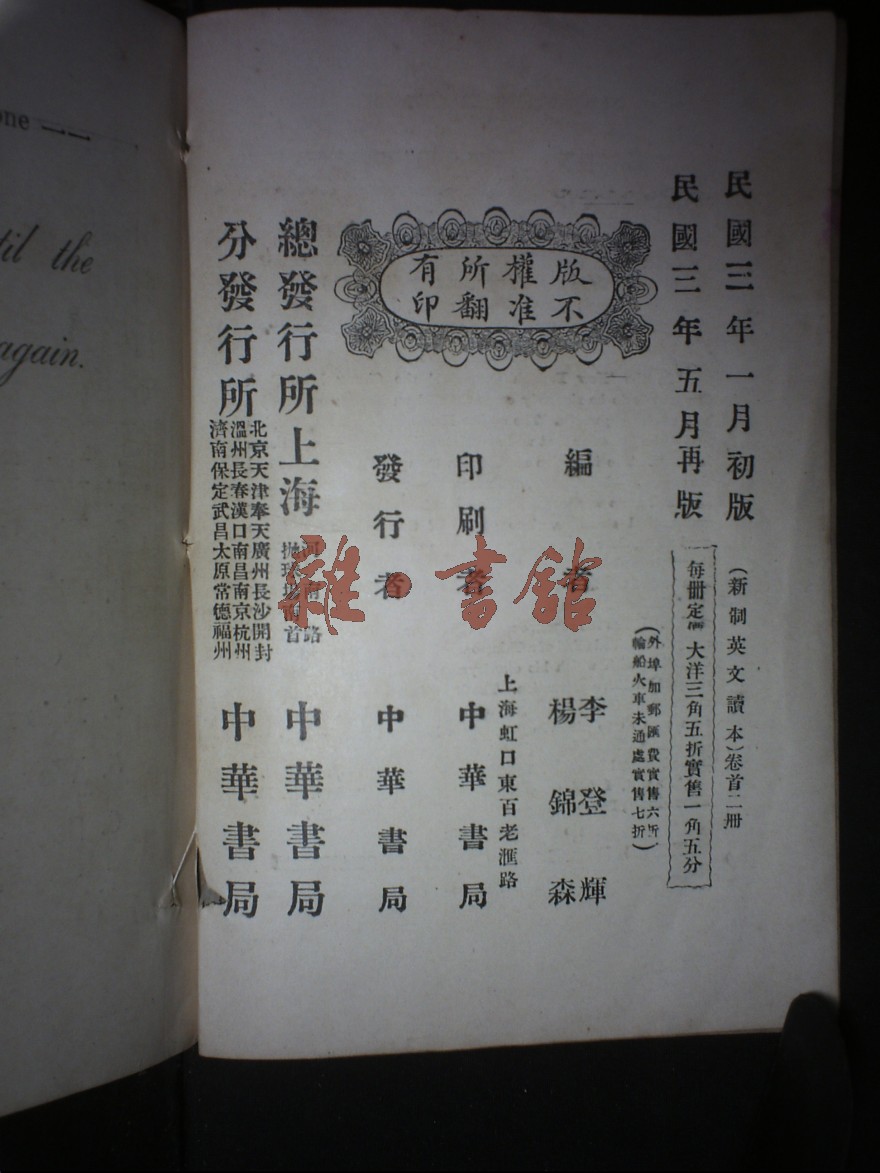 one
til the
again.
民國三年一月初版
民國三年五月再版
(新制英文讀本)卷首二冊
每冊定價大洋三角五折實售一角五分
(外埠加郵匯費實售六折
輪船火車未通處實售七折)
版權所有
不准翻印
編者
李登輝
楊錦森
印刷者
上海虹口東百老滙路
中華書局
發行者
中華書局
總發行所
上海
河南路
拋球場南首
中華書局
分發行所
北京天津奉天廣州長沙開封
溫州長春漢口南昌南京杭州
濟南保定武昌太原常德福州
中華書局
雜·書館